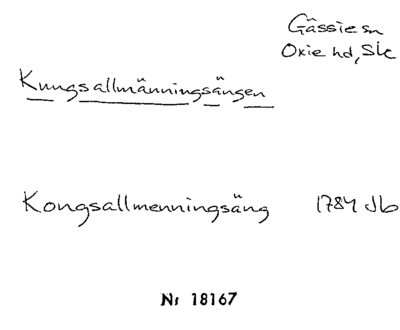 Gässie sn
Oxie hd, Sk
Kungsallmänningsängen
Kongsallmenningsäng 1784 Jb
Nr 18167